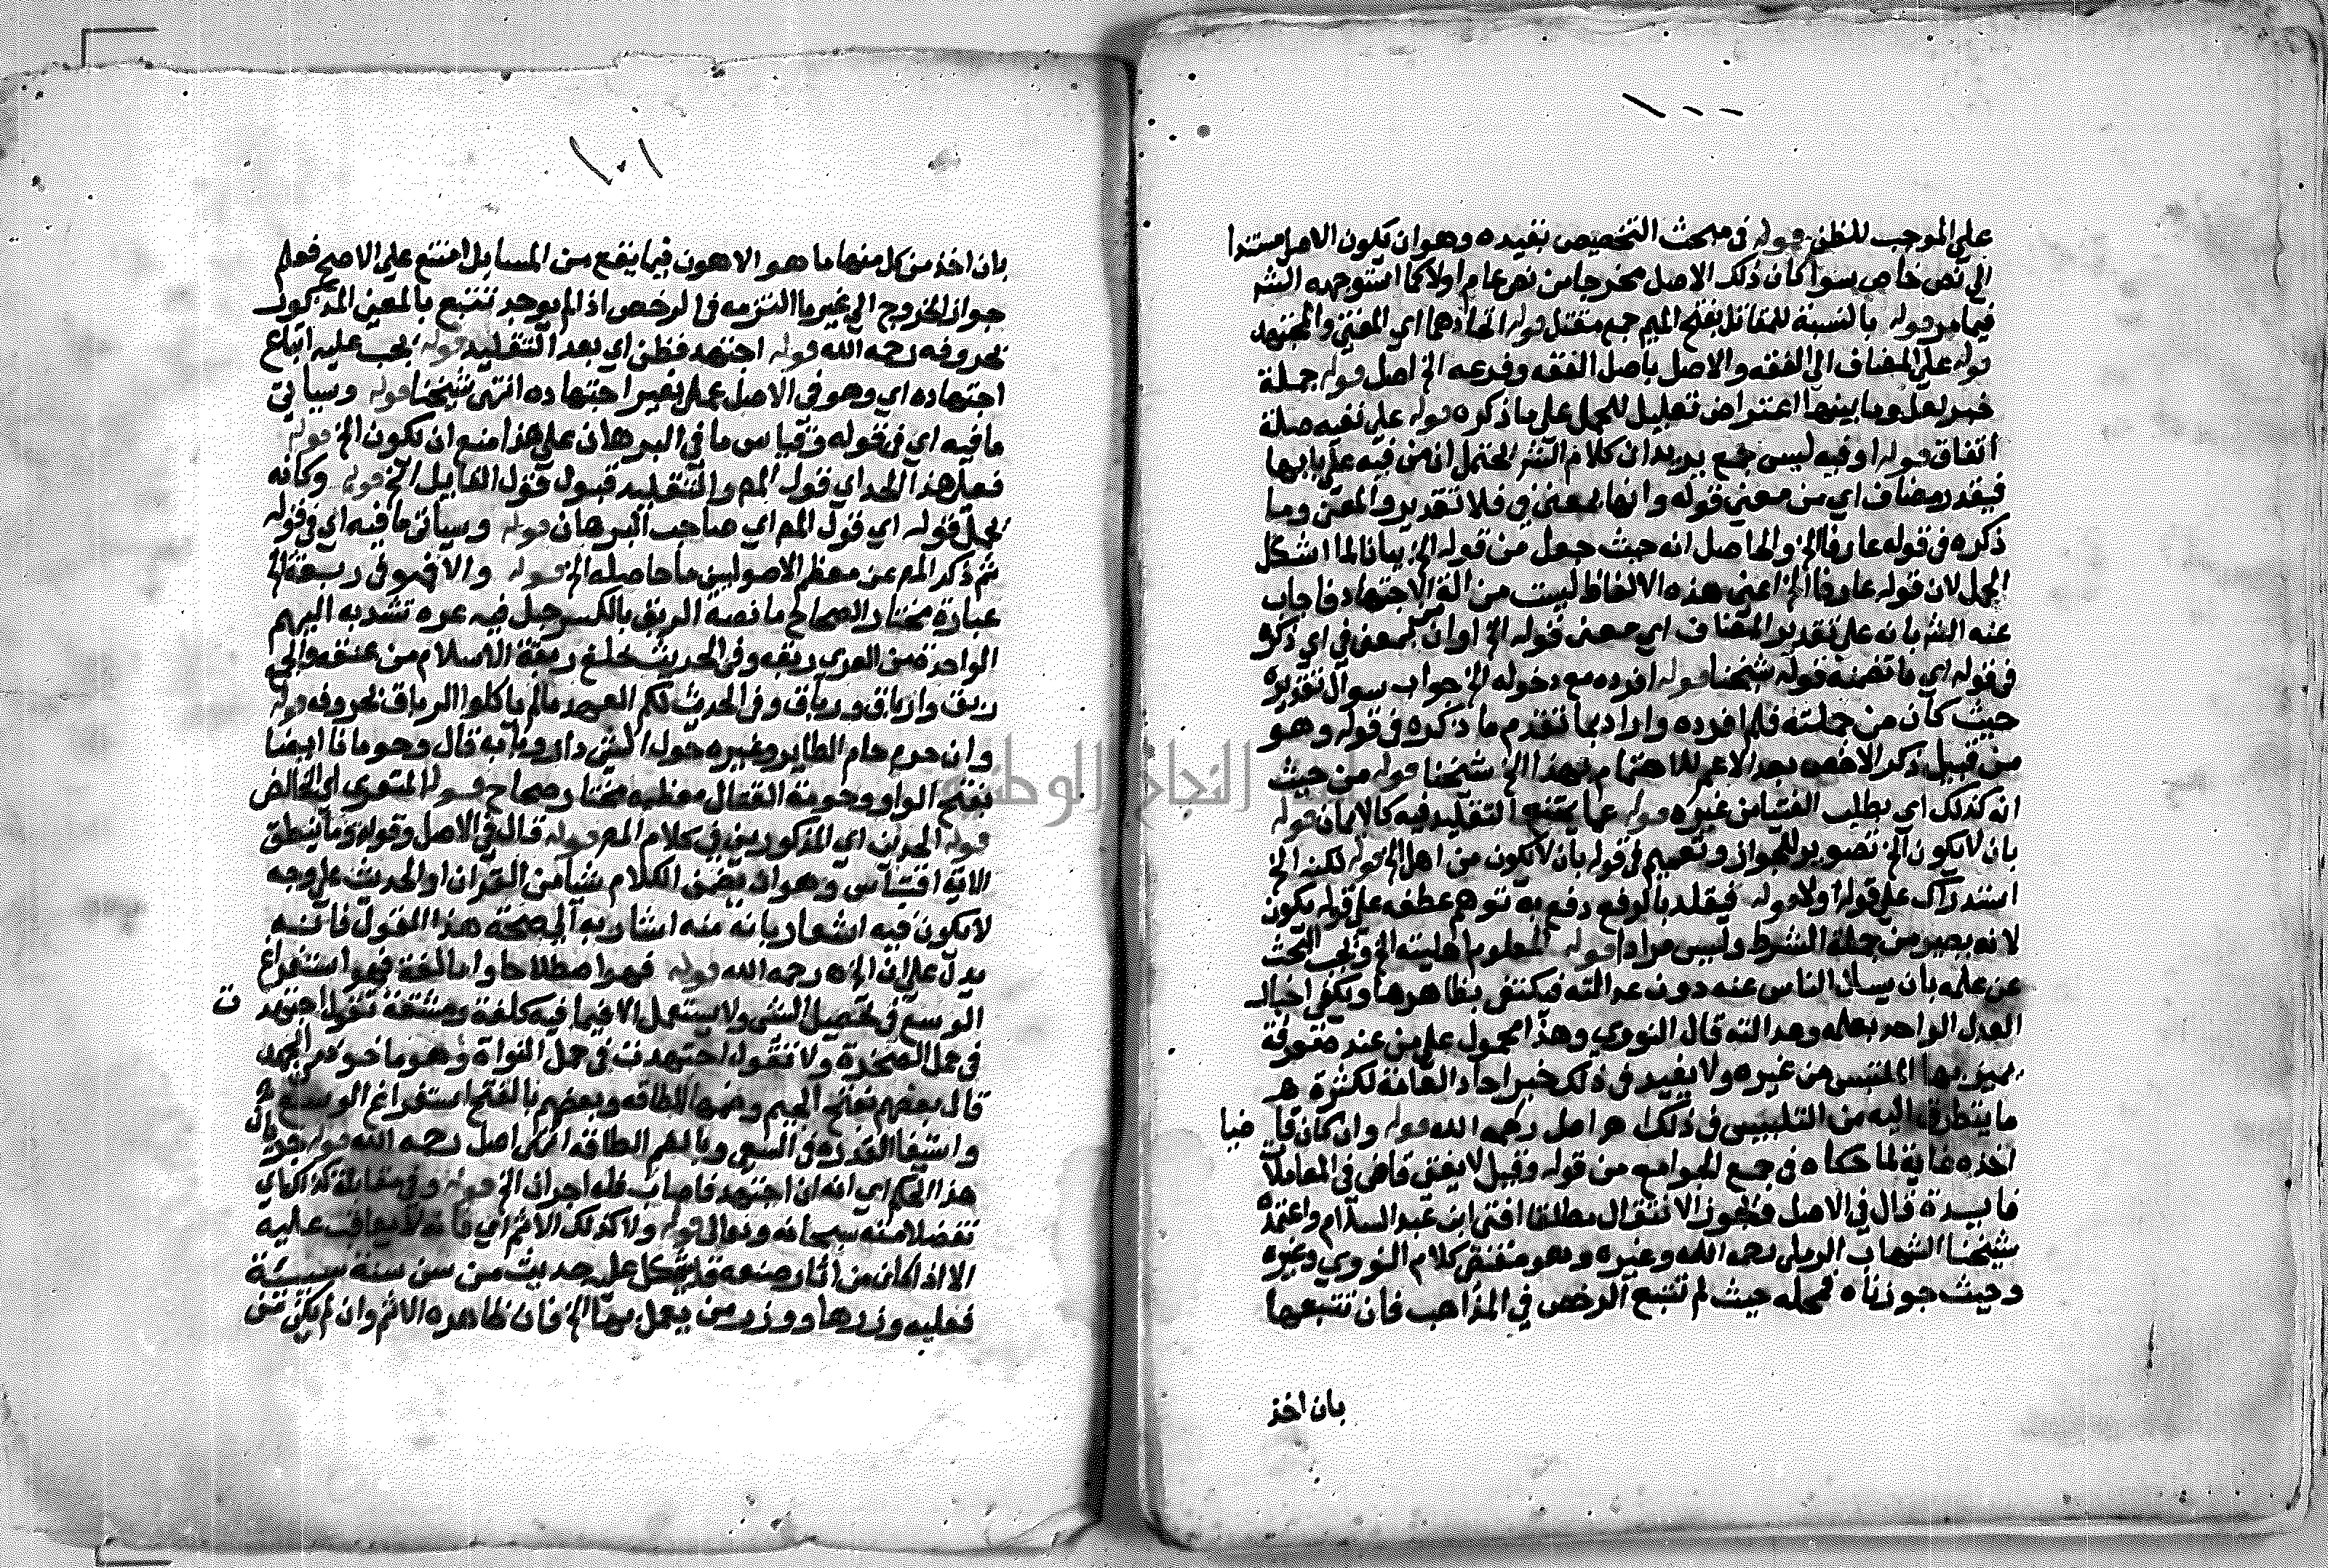 ١٠٠
على الموجب للظن قوله في مبحث التخصيص بقيده وهو ان يكون الاصل مستندا
الى نص خاص سوا كان ذلك الاصل مخرجا من نص عام اولا كما استوجهه الش
فيما مر قوله بالنسبة للمقاتل بفتح الميم جمع مقتل قوله اتحادهما اي المفتي والمجتهد
قوله على المضاف الى الفقه والاصل باصل الفقه وفرعه الخ اصل قوله جملة
خبر لعل وما بينهما اعتراض تعليل للحمل على ما ذكره قوله على نفيه صلة
اتفاق قوله او فيه ليس جمع يريد ان كلام الش المحتمل ان من فيه على بابها
فيقدر مضاف اي من معنى قوله وانها بمعنى في فلا تقدير والمعنى وما
ذكره في قوله عارفا الخ والحاصل انه حيث جعل من قوله الخ بيانا لما اشكل
الحمل لان قوله عارفا الخ اعني هذه الالفاظ ليست من الة الاجتهاد فاجاب
عنه الش بانه على تقدير المضاف اي معنى قوله الخ او ان من بمعنى في اي ذكره
في قوله اي ما تضمنه قوله شيخنا قوله افرده مع دخوله الخ جواب سوال تقديره
حيث كان من جملته فلم افرده واراد بما تقدم ما ذكره في قوله وهو
من قبيل ذكر الاخص بعد الاعم للاهتمام بهذا الخ شيخنا قوله من حيث
انه كذلك اي يطلب الفتيا من غيره قوله عما يمتنع التقليد فيه كالايمان قوله
بان لا يكون الخ تصوير للجواز وتعميم في قوله بان لا يكون من اهل الخ قوله لكنه الخ
استدراك على قوله اولا قوله فيقلد بالرفع دفع به توهم عطفه على قوله يكون
لانه يصير من جملة الشرط وليس مرادا قوله المعلوم اهليته الخ ويجب البحث
عن علمه بان يسال الناس عنه دون عدالته فيكتفى بظاهرها ويكفي اخبار
العدل الواحد بعلمه وعدالته قال النووي وهذا محمول على من عنده معرفة
يميز بها الملتبس من غيره ولا يفيد في ذلك خبر احاد العامة لكثرة هر
ما يتطرق اليه من التلبيس في ذلك هر اصل رحمه الله قوله وان كان قاضيا
اخذه غاية لما حكاه في جمع الجوامع من قوله وقيل لا يفتي قاض في المعاملات
فايدة قال في الاصل فيجوز الانتقال مطلقا افتى ابن عبد السلام واعتمده
شيخنا الشهاب الرملي رحمه الله وغيره وهو مقتضى كلام النووي وغيره
وحيث جوزناه فمحله حيث لم تتبع الرخص في المذاهب فان تتبعها
بان اخذ
١٠١
بان اخذ من كل منها ما هو الاهون فيما يقع من المسايل امتنع على الاصح فعلم
جواز الخروج الى غير ما التزمه في الرخص اذا لم يوجد تتبع بالمعنى المذكور
بحروفه رحمه الله قوله اجتهد فظن اي بعد التقليد قوله يجب عليه اتباع
اجتهاده اي وهو في الاصل عمل بغير اجتهاده انتهى شيخنا قوله وسياتي
ما فيه اي في قوله وقياس ما في البرهان على هذا منع ان يكون الخ قوله
فعلى هذا الحد اي قول المص والتقليد قبول قول القايل الخ قوله وكانه
يحمل قوله اي قول المص اي صاحب البرهان قوله وسياتي ما فيه اي في قوله
ثم ذكر المص عن معظم الاصوليين ما حاصله الخ قوله والا فهو في ربقة الخ
عبارة مختار الصحاح ما نصه الربق بالكسر حبل فيه عدة عرى تشد به البهم
الواحدة من العرى ربقة وفي الحديث خلع ربقة الاسلام من عنقه والجمع
ربق وارباق ورباق وفي الحديث لكم العهد ما لم ياكلوا الرباق بحروفه قوله
وان حرم حام الطاير وغيره حول الشي دار وبابه قال وحومانا ايضا
بفتح الواو وحومة القتال معظمه مختار صحاح قوله المتعري اي الخالص
قوله الحدين اي المذكورين في كلام المص قوله قال في الاصل وقوله وما ينطق
الاية اقتباس وهو ان يضمن الكلام شيا من القران او الحديث على وجه
لا يكون فيه اشعار بانه منه اشار به الى صحة هذا المقول فانه
يدل على ان الخ رحمه الله قوله فهو اصطلاحا واما لغة فهو استفراغ
الوسع في تحصيل الشي ولا يستعمل الا فيما فيه كلفة ومشقة تقول اجتهدت
في حمل الصخرة ولا تقول اجتهدت في حمل النواة وهو ماخوذ من الجهد
قال بعضهم بفتح الجيم وضمها الطاقه وبعضهم بالفتح استفراغ الوسع
واستيفا القدرة في السعي وبالضم الطاقه انتهى اصل رحمه الله قوله
هذا الحكم اي انه ان اجتهد فاصاب فله اجران الخ قوله وفي مقابلة كذلك اي
تفضلا منه سبحانه وتعالى قوله ولا كذلك الاثم اي فانه لا يعاقب عليه
الا اذا كان من اثار صنعه قد يشكل عليه حديث من سن سنة سيئة
فعليه وزرها ووزر من يعمل بها الخ فان ظاهره الاثم وان لم يكن من